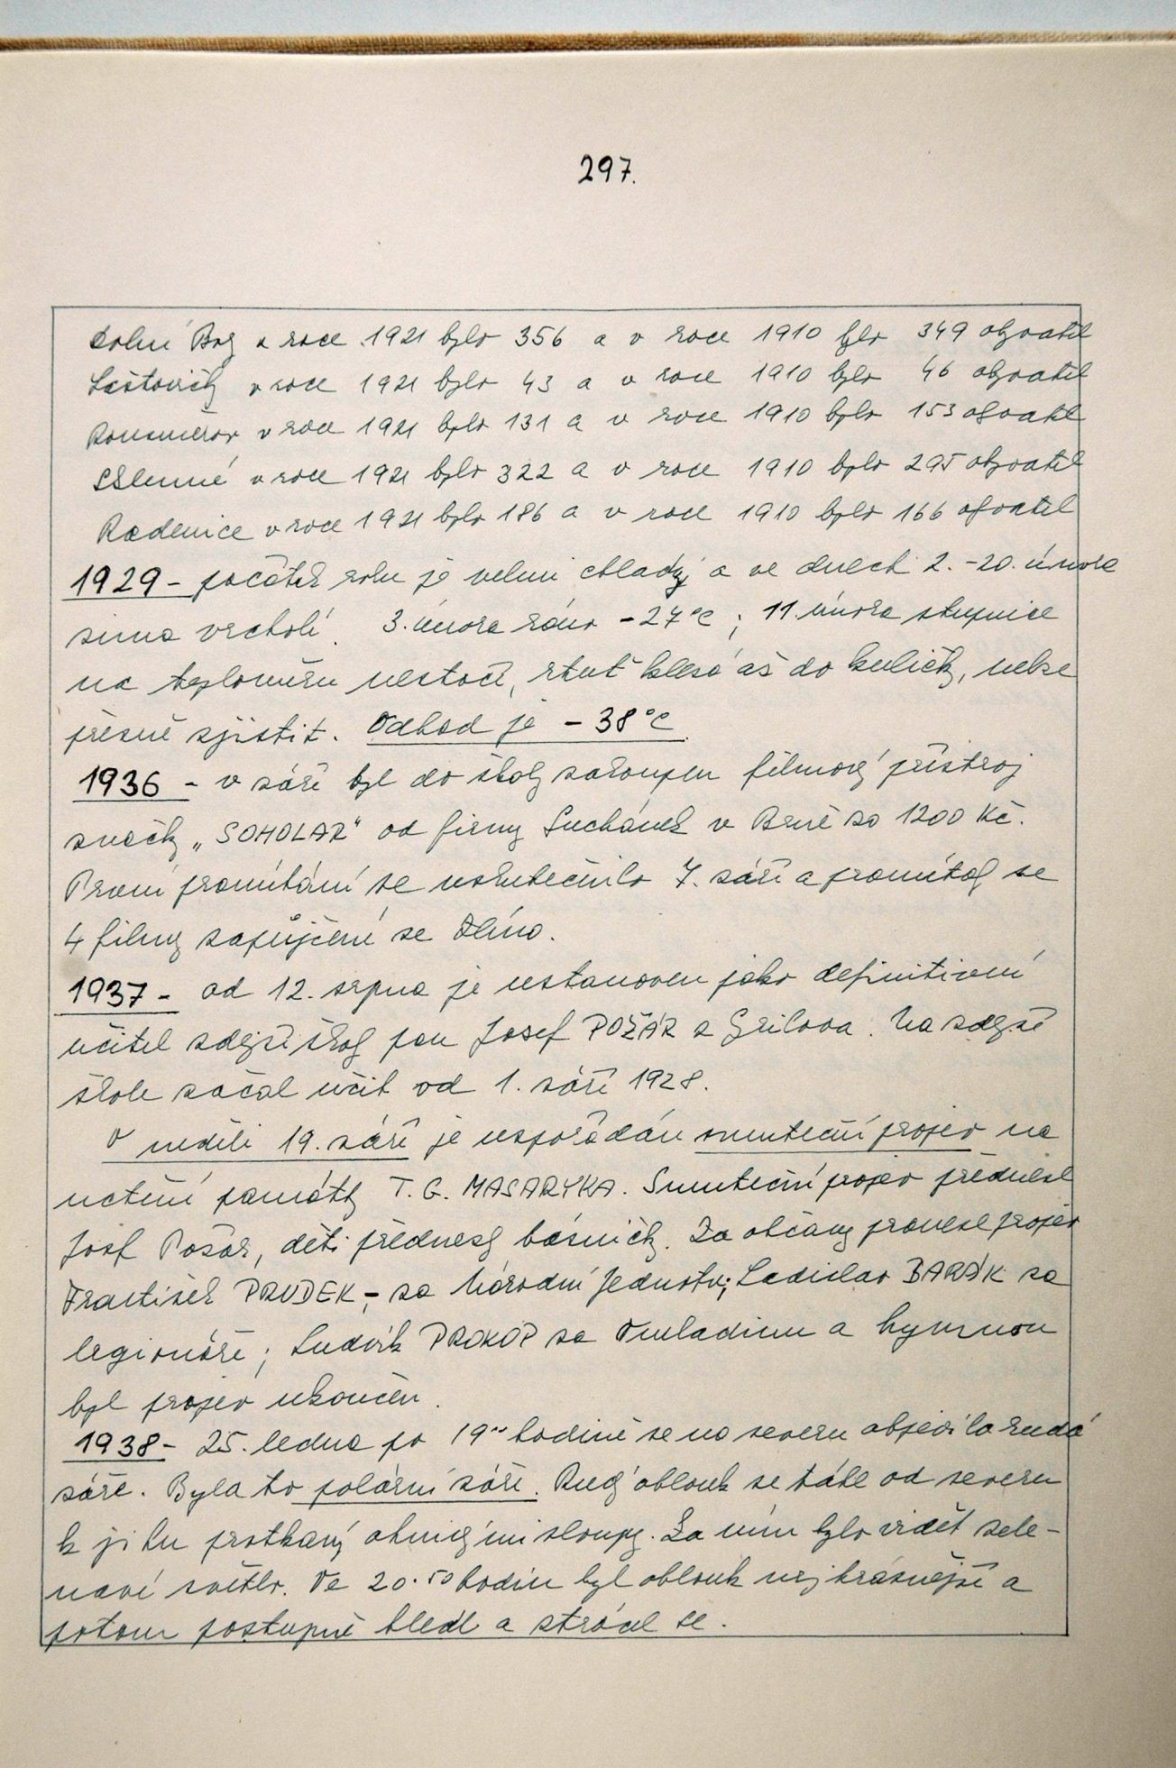 297.
Dolní Bory v roce 1921 bylo 356 a v roce 1910 bylo 349 obyvatel
Laštovičky v roce 1921 bylo 43 a v roce 1910 bylo 46 obyvatel
v roce 1921 bylo 131 a v roce 1910 bylo 153 obyvatel
Sklenné v roce 1921 bylo 322 a v roce 1910 bylo 295 obyvatel
Radenice v roce 1921 bylo 186 a v roce 1910 bylo 166 obyvatel
1929 - počátek roku je velmi chladný a ve dnech 2. - 20. února
zima vrcholí. 3. února ráno - 27°C ; 11. února stupnice
na teploměru nestačí, rtuť klesá až do kuličky, nelze
přesně zjistit. Odhad je - 38°C
1936 - v září byl do školy zakoupen filmový přístroj
značky „SCHOLAR" od firmy Suchánek v Brně za 1200 Kč.
První promítání se uskutečnilo 7. září a promítaly se
4 filmy zapůjčené ze Zlína.
1937 - od 12. srpna je ustanoven jako definitivní
učitel zdejší školy pan Josef POŽÁR z Grilova. Na zdejší
škole začal učit od 1. září 1928.
V neděli 19. září je uspořádán smuteční projev na
uctění památky T. G. MASARYKA. Smuteční projev přednesl
Josef Požár, děti přednesly básničky. Za občany pronesl projev
František PRUDEK - za Národní Jednotu; Ladislav BARÁK za
legionáře ; Ludvík PROKOP za Omladinu a hymnou
byl projev ukončen.
1938 - 25. ledna po 19 hodině se na severu objevila rudá
záře. Byla to polární záře. Rudý oblouk se táhl od severu
k jihu protkaný ohnivými sloupy. Za ním bylo vidět zele-
navé světlo. Ve 20.50 hodin byl oblouk nejkrásnější a
potom postupně bledl a ztrácel se.